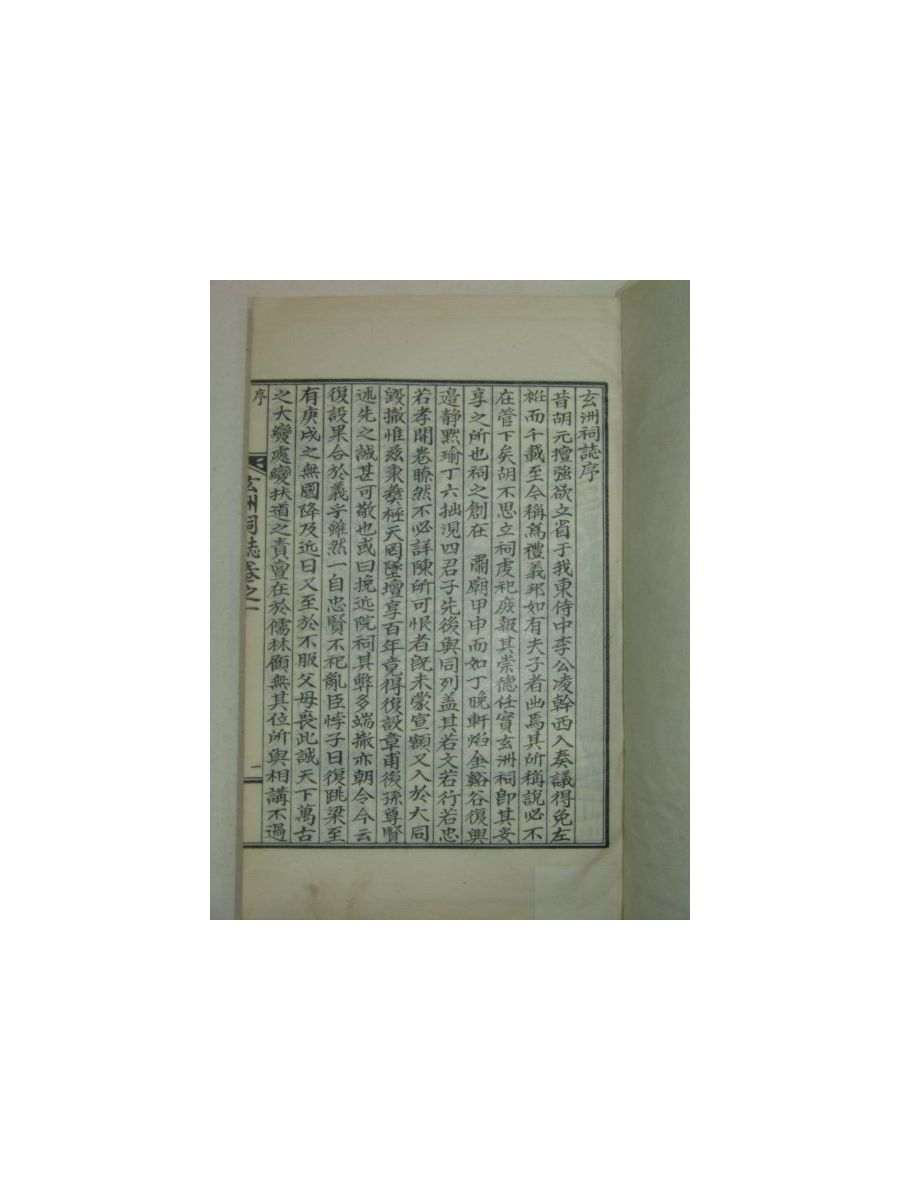 玄洲祠誌序
昔胡元擅強欲立省于我東侍中李公凌幹西入奏議得免左
袵而千載至今稱爲禮義邦如有夫子者出焉其所稱說必不
在管下矣胡不思立祠虔祀庶報其崇德任實玄洲祠卽其妥
享之所也祠之創在 肅廟甲申而如丁晚軒焰金谿谷復興
邉静黙瑜丁六拙滉四君子先後與同列盖其若文若行若忠
若孝開卷瞭然不必詳陳所可恨者旣未蒙宣額又入於大同
毀撤惟玆秉彝極天罔墜壇享百年竟得復設章甫後孫尊賢
述先之誠甚可敬也或曰挽近院祠其弊多端撤亦朝令今云
復設果合於義乎雖然一自忠賢不祀亂臣悖子日復跳梁至
有庚戌之無國降及近日又至於不服父母喪此誠天下萬古
之大變處變扶道之責亶在於儒林顧無其位所與相講不過
序
玄洲祠誌卷之一
一